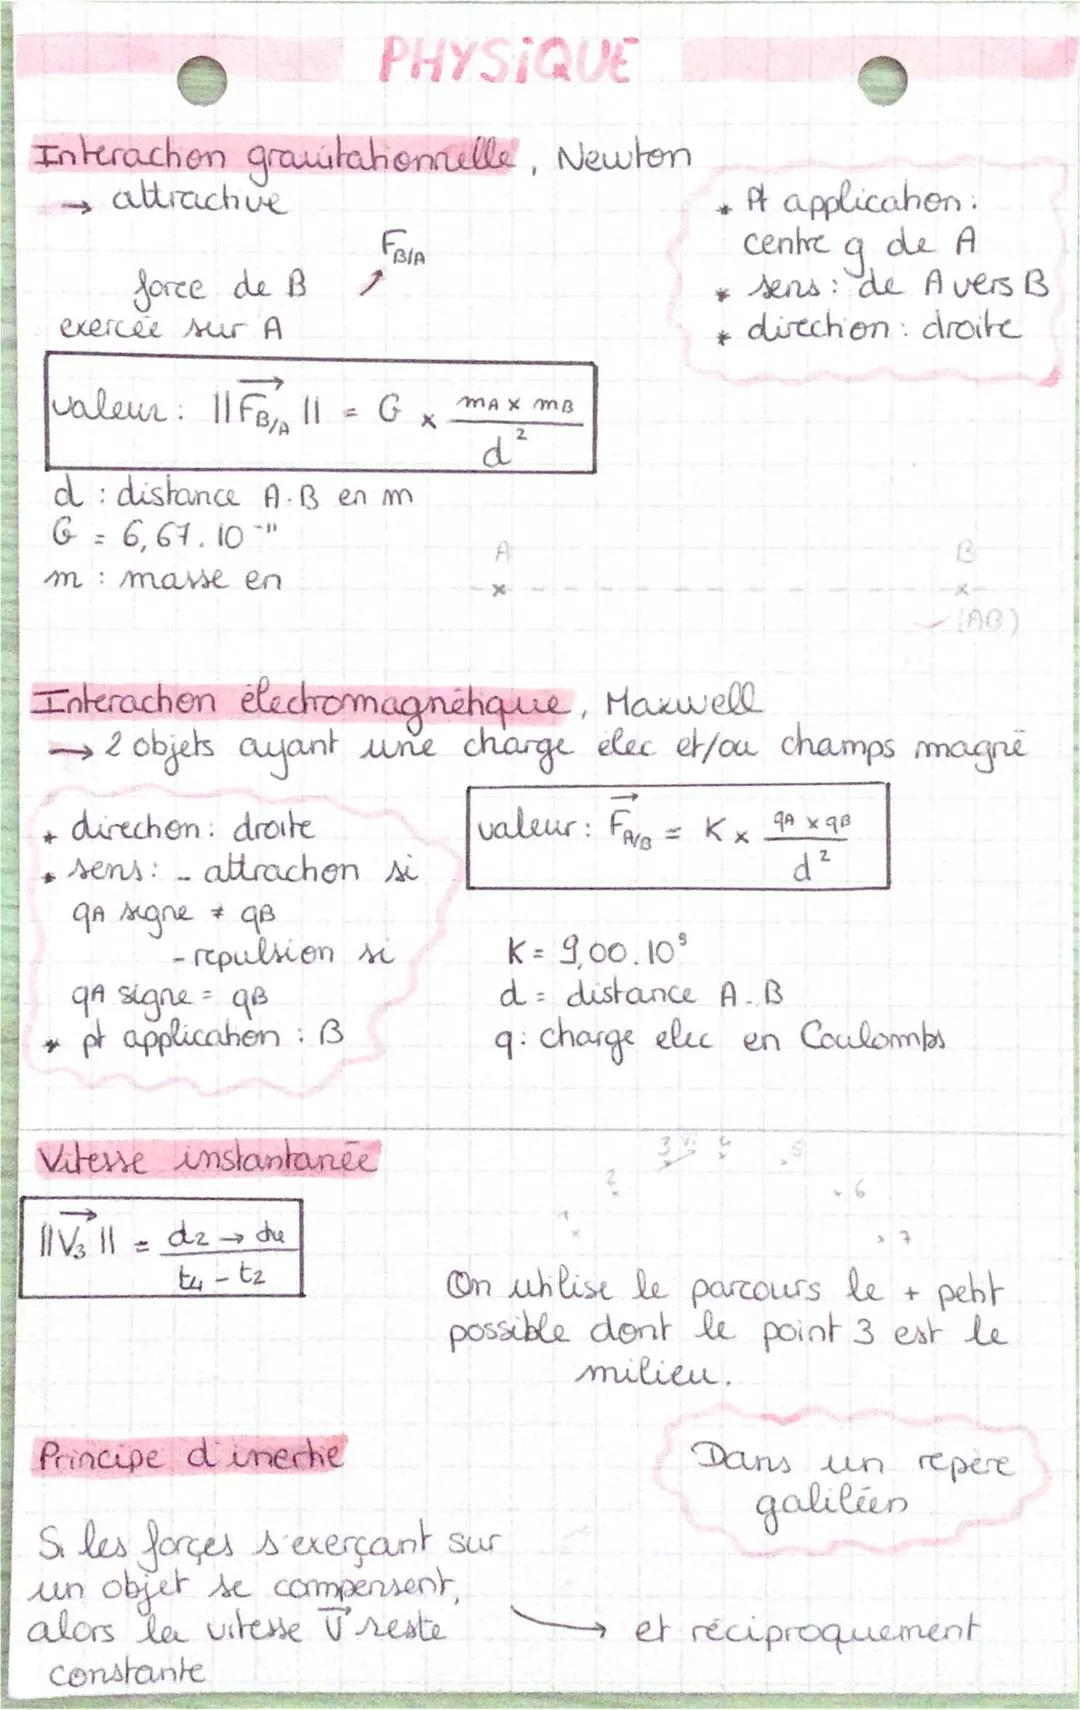 PHYSIQUE
Interaction gravitationnelle, Newton
→ attractive
F B/A
force de B
exercée sur A
* Pt application:
centre g de A
* sens: de A vers B
* direction: droite
valeur: ||F B/A|| = G x mA x mB / d²
d : distance A.B en m
G = 6,67.10⁻¹¹
m : masse en
A B
(AB)
Interaction électromagnétique, Maxwell
→ 2 objets ayant une charge élec et/ou champs magné
* direction: droite
* sens: - attraction si
qA signe ≠ qB
- repulsion si
qA signe = qB
* pt application : B
valeur: F A/B = K x qA x qB / d²
K = 9,00.10⁹
d = distance A.B
q: charge elec en Coulombs
Vitesse instantanée
||V₃|| = d2 → d4 / t4 - t2
1 2 3 4 5 6 7
On utilise le parcours le + petit
possible dont le point 3 est le
milieu.
Principe d'inertie
Dans un repère
galiléen
Si les forçes s'exerçant sur
un objet se compensent,
alors la vitesse V reste
constante
→ et réciproquement